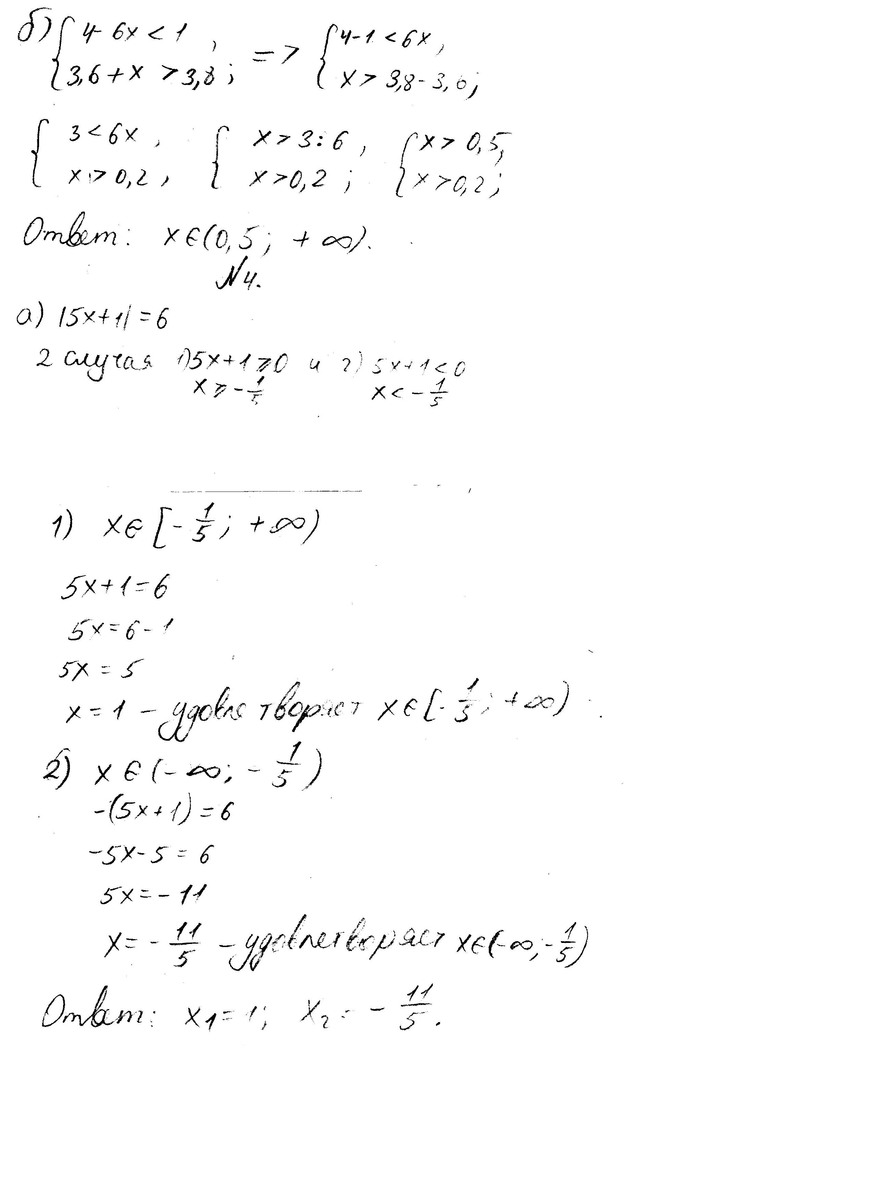 б) { 4-6x < 1 , => { 4-1 < 6x ,
{ 3,6+x > 3,8 ; { x > 3,8-3,6 ;
{ 3 < 6x , { x > 3:6 , { x > 0,5,
{ x > 0,2 , { x > 0,2 ; { x > 0,2 ;
Ответ: x∈(0,5; +∞).
№4.
а) |5x+1| = 6
2 случая 1) 5x+1⩾0 и 2) 5x+1<0
x⩾-1/5 x<-1/5
1) x∈[-1/5; +∞)
5x+1=6
5x=6-1
5x=5
x=1 – удовлетворяет x∈[-1/5; +∞)
2) x∈(-∞; -1/5)
-(5x+1)=6
-5x-5=6
5x=-11
x=-11/5 – удовлетворяет x∈(-∞;-1/5)
Ответ: x₁=1; x₂=-11/5.